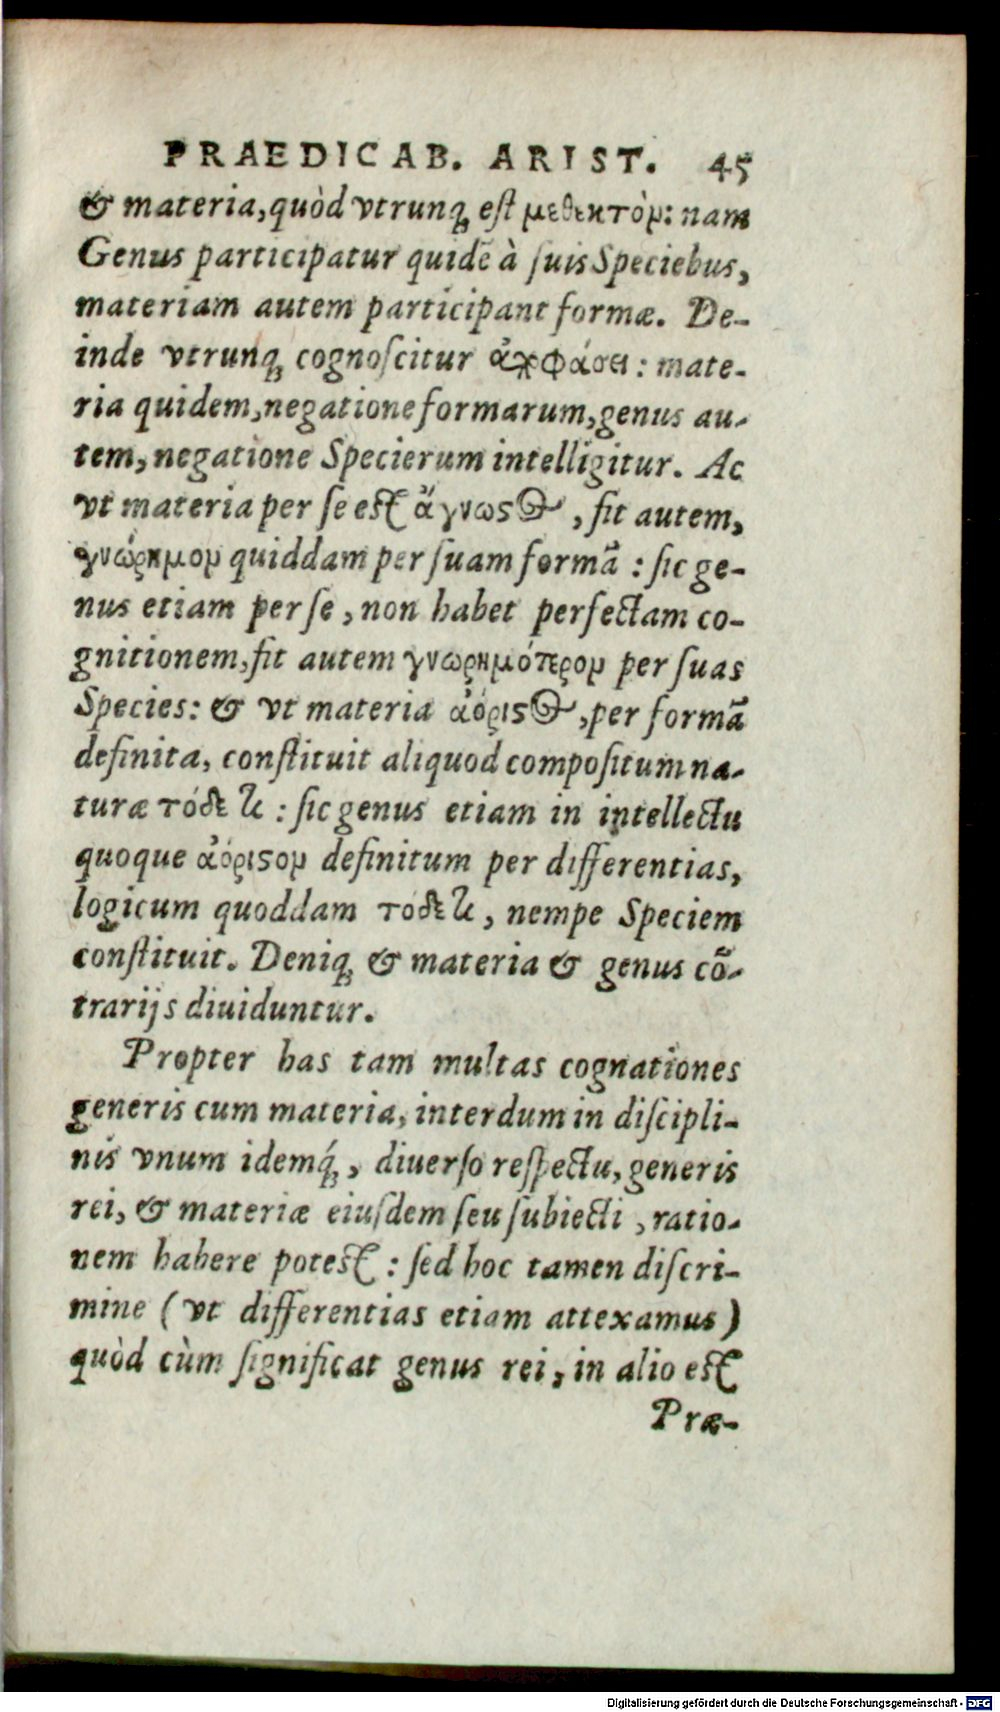 PRAEDICAB. ARIST. 45
& materia, quòd vtrunq́ est μεθεκτὸν: nam
Genus participatur quidẽ à suis Speciebus,
materiam autem participant formæ. De-
inde vtrunq́ cognoscitur ἀποφάσει: mate-
ria quidem, negatione formarum, genus au-
tem, negatione Specierum intelligitur. Ac
vt materia per se est ἄγνωστος, fit autem,
γνώριμον quiddam per suam formã: sic ge-
nus etiam per se, non habet perfectam co-
gnitionem, fit autem γνωριμότερον per suas
Species: & vt materia ἀόριστος, per formã
definita, constituit aliquod compositum na-
turæ τόδε τι: sic genus etiam in intellectu
quoque ἀόριστον definitum per differentias,
logicum quoddam τοδε τι, nempe Speciem
constituit. Deniq́ & materia & genus cõ-
trarijs diuiduntur.
Propter has tam multas cognationes
generis cum materia, interdum in discipli-
nis vnum idemq́, diuerso respectu, generis
rei, & materiæ eiusdem seu subiecti, ratio-
nem habere potest: sed hoc tamen discri-
mine (vt differentias etiam attexamus)
quòd cùm significat genus rei, in alio est
Præ-
Digitalisierung gefördert durch die Deutsche Forschungsgemeinschaft - DFG